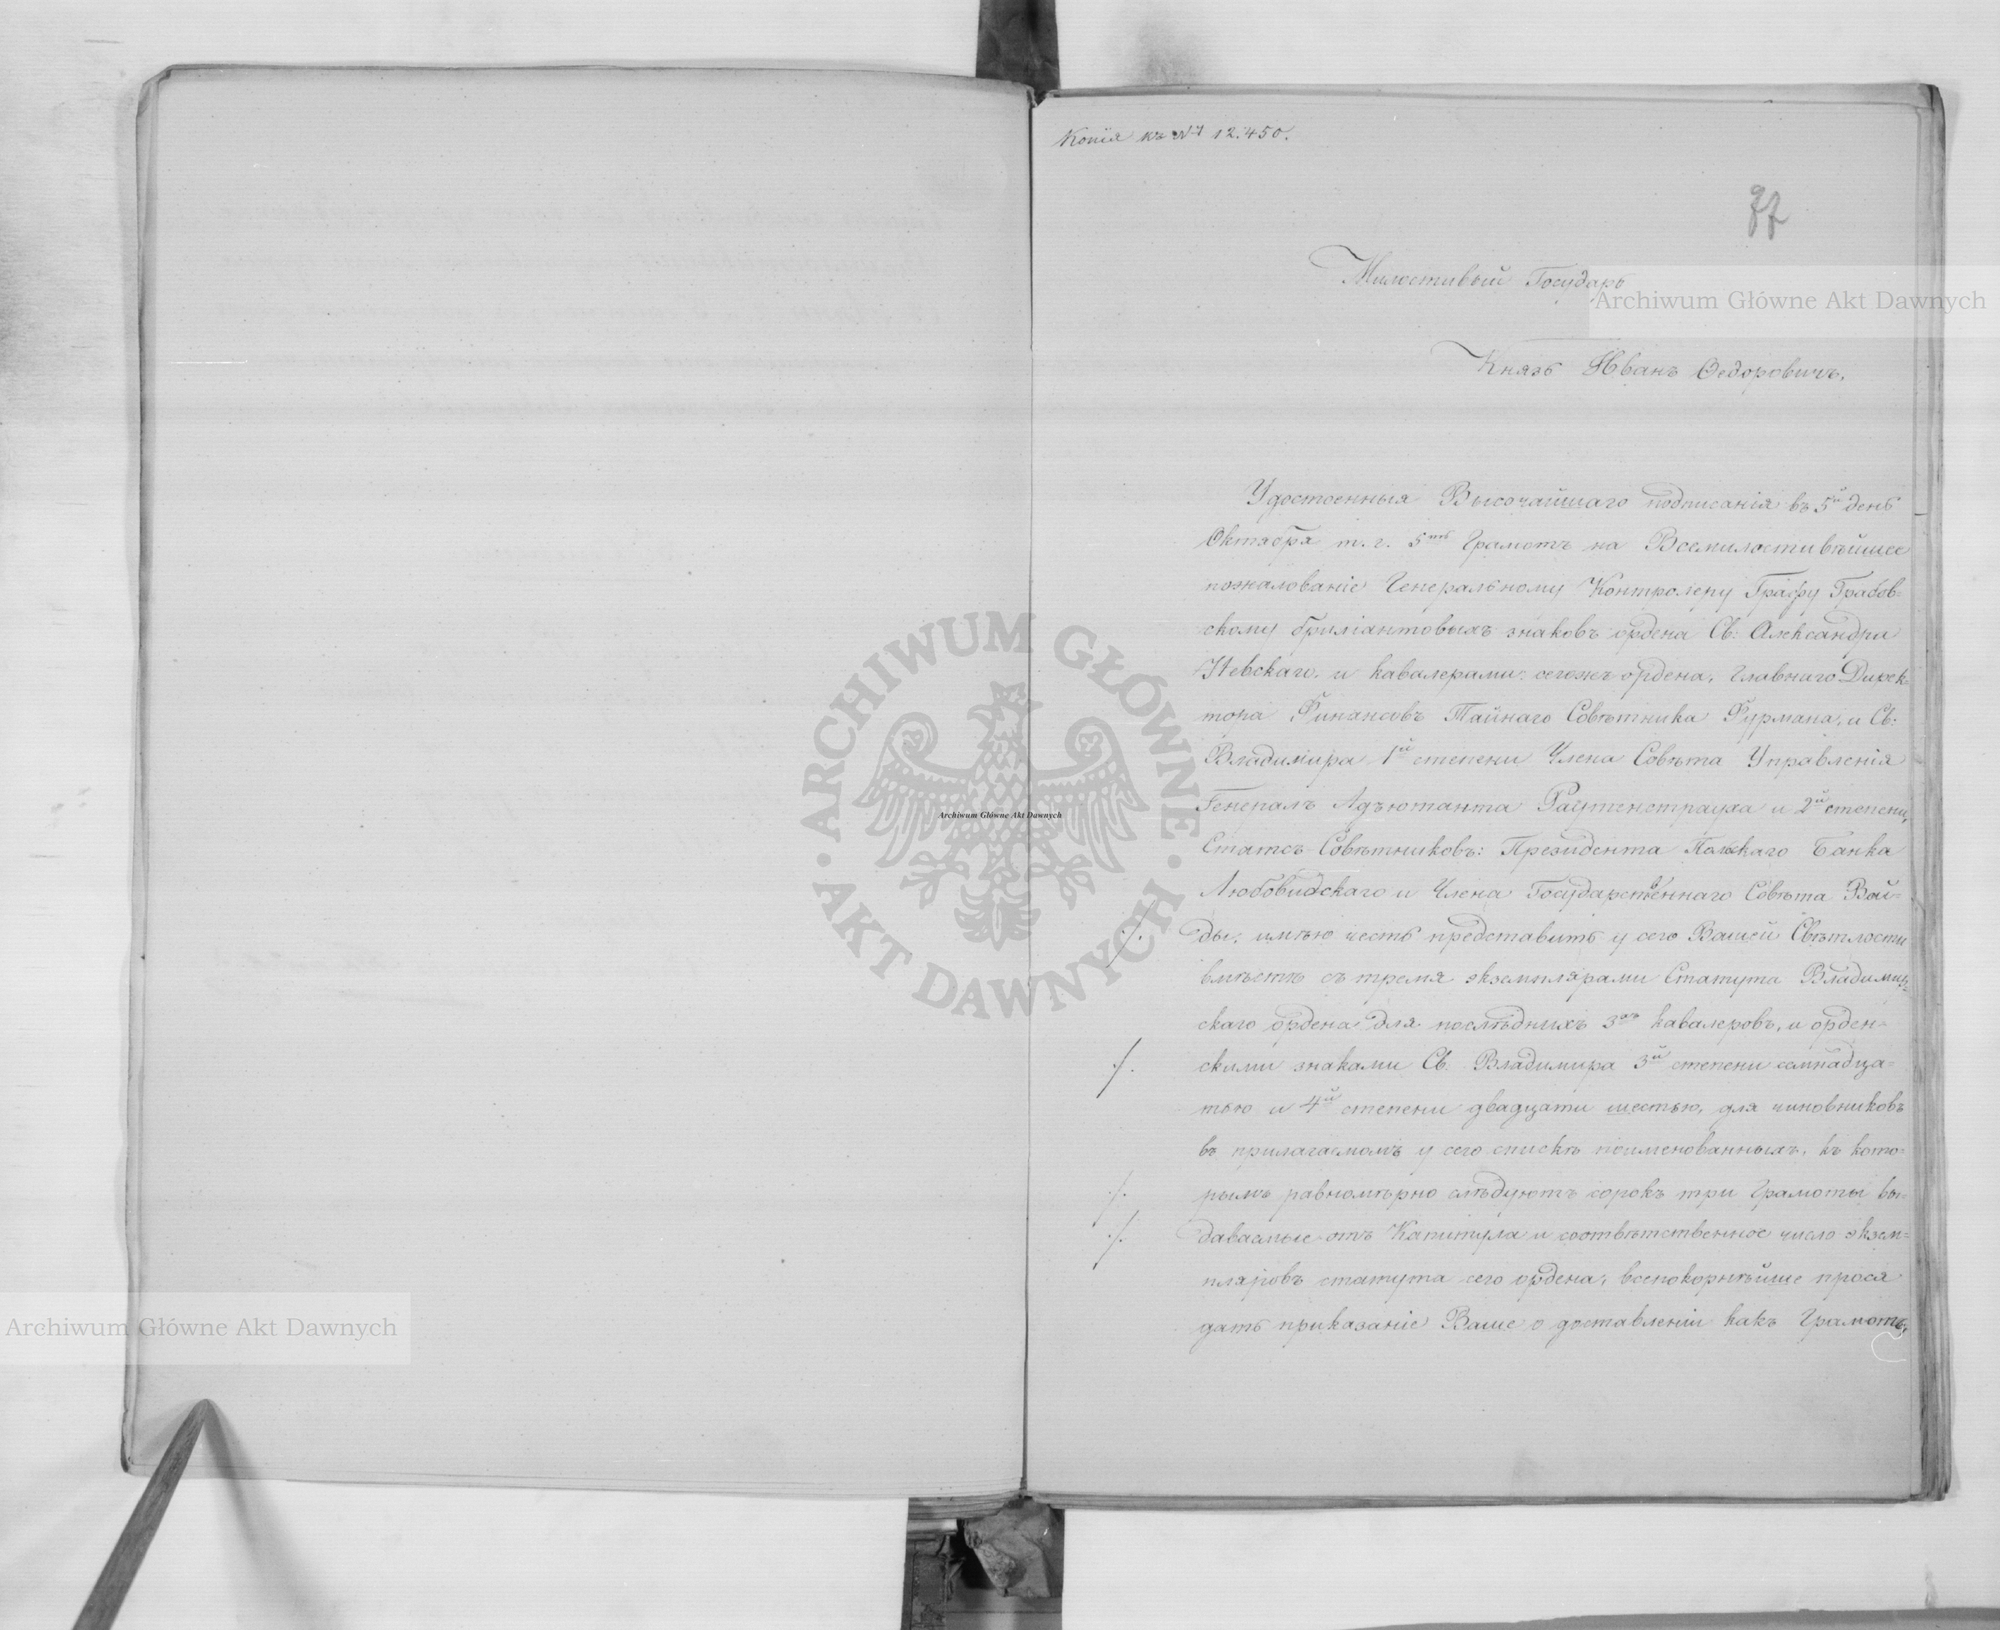 Копія къ № 12.450.
77
Милостивый Государь
Князь Иванъ Ѳедоровичъ.
Удостоенныя Высочайшаго подписанія въ 5й день
Октября т. г. 5ть Грамотъ на Всемилостивѣйшее
пожалованіе Генеральному Контролеру Графу Грабов-
скому бриліантовыхъ знаковъ ордена Св: Александра
Невскаго, и кавалерами: сегожъ ордена, Главнаго Дирек-
тора Финансовъ Тайнаго Совѣтника Фурмана, и Св:
Владиміра 1й степени Члена Совѣта Управленія
Генералъ Адъютанта Раутенстрауха и 2й степени,
Статсъ-Совѣтниковъ: Президента Польскаго Банка
Любовидскаго и Члена Государственнаго Совѣта Вой-
./. ды, имѣю честь представить у сего Вашей Свѣтлости
вмѣстѣ съ тремя экземплярами Статута Владимир-
скаго ордена для послѣднихъ 3хъ кавалеровъ, и орден-
./. скими знаками Св. Владимира 3й степени семнадца-
тью и 4й степени двадцати шестью, для чиновниковъ
въ прилагаемомъ у сего спискѣ поименованныхъ, къ кото-
./. рымъ равномѣрно слѣдуютъ сорокъ три Грамоты вы-
./. даваемые отъ Капитула и соотвѣтственное число экзем-
пляровъ статута сего ордена, всепокорнѣйше прося
дать приказаніе Ваше о доставленіи какъ Грамотъ,
Archiwum Główne Akt Dawnych
Archiwum Główne Akt Dawnych
Archiwum Główne Akt Dawnych
ARCHIWUM GŁÓWNE · AKT DAWNYCH ·